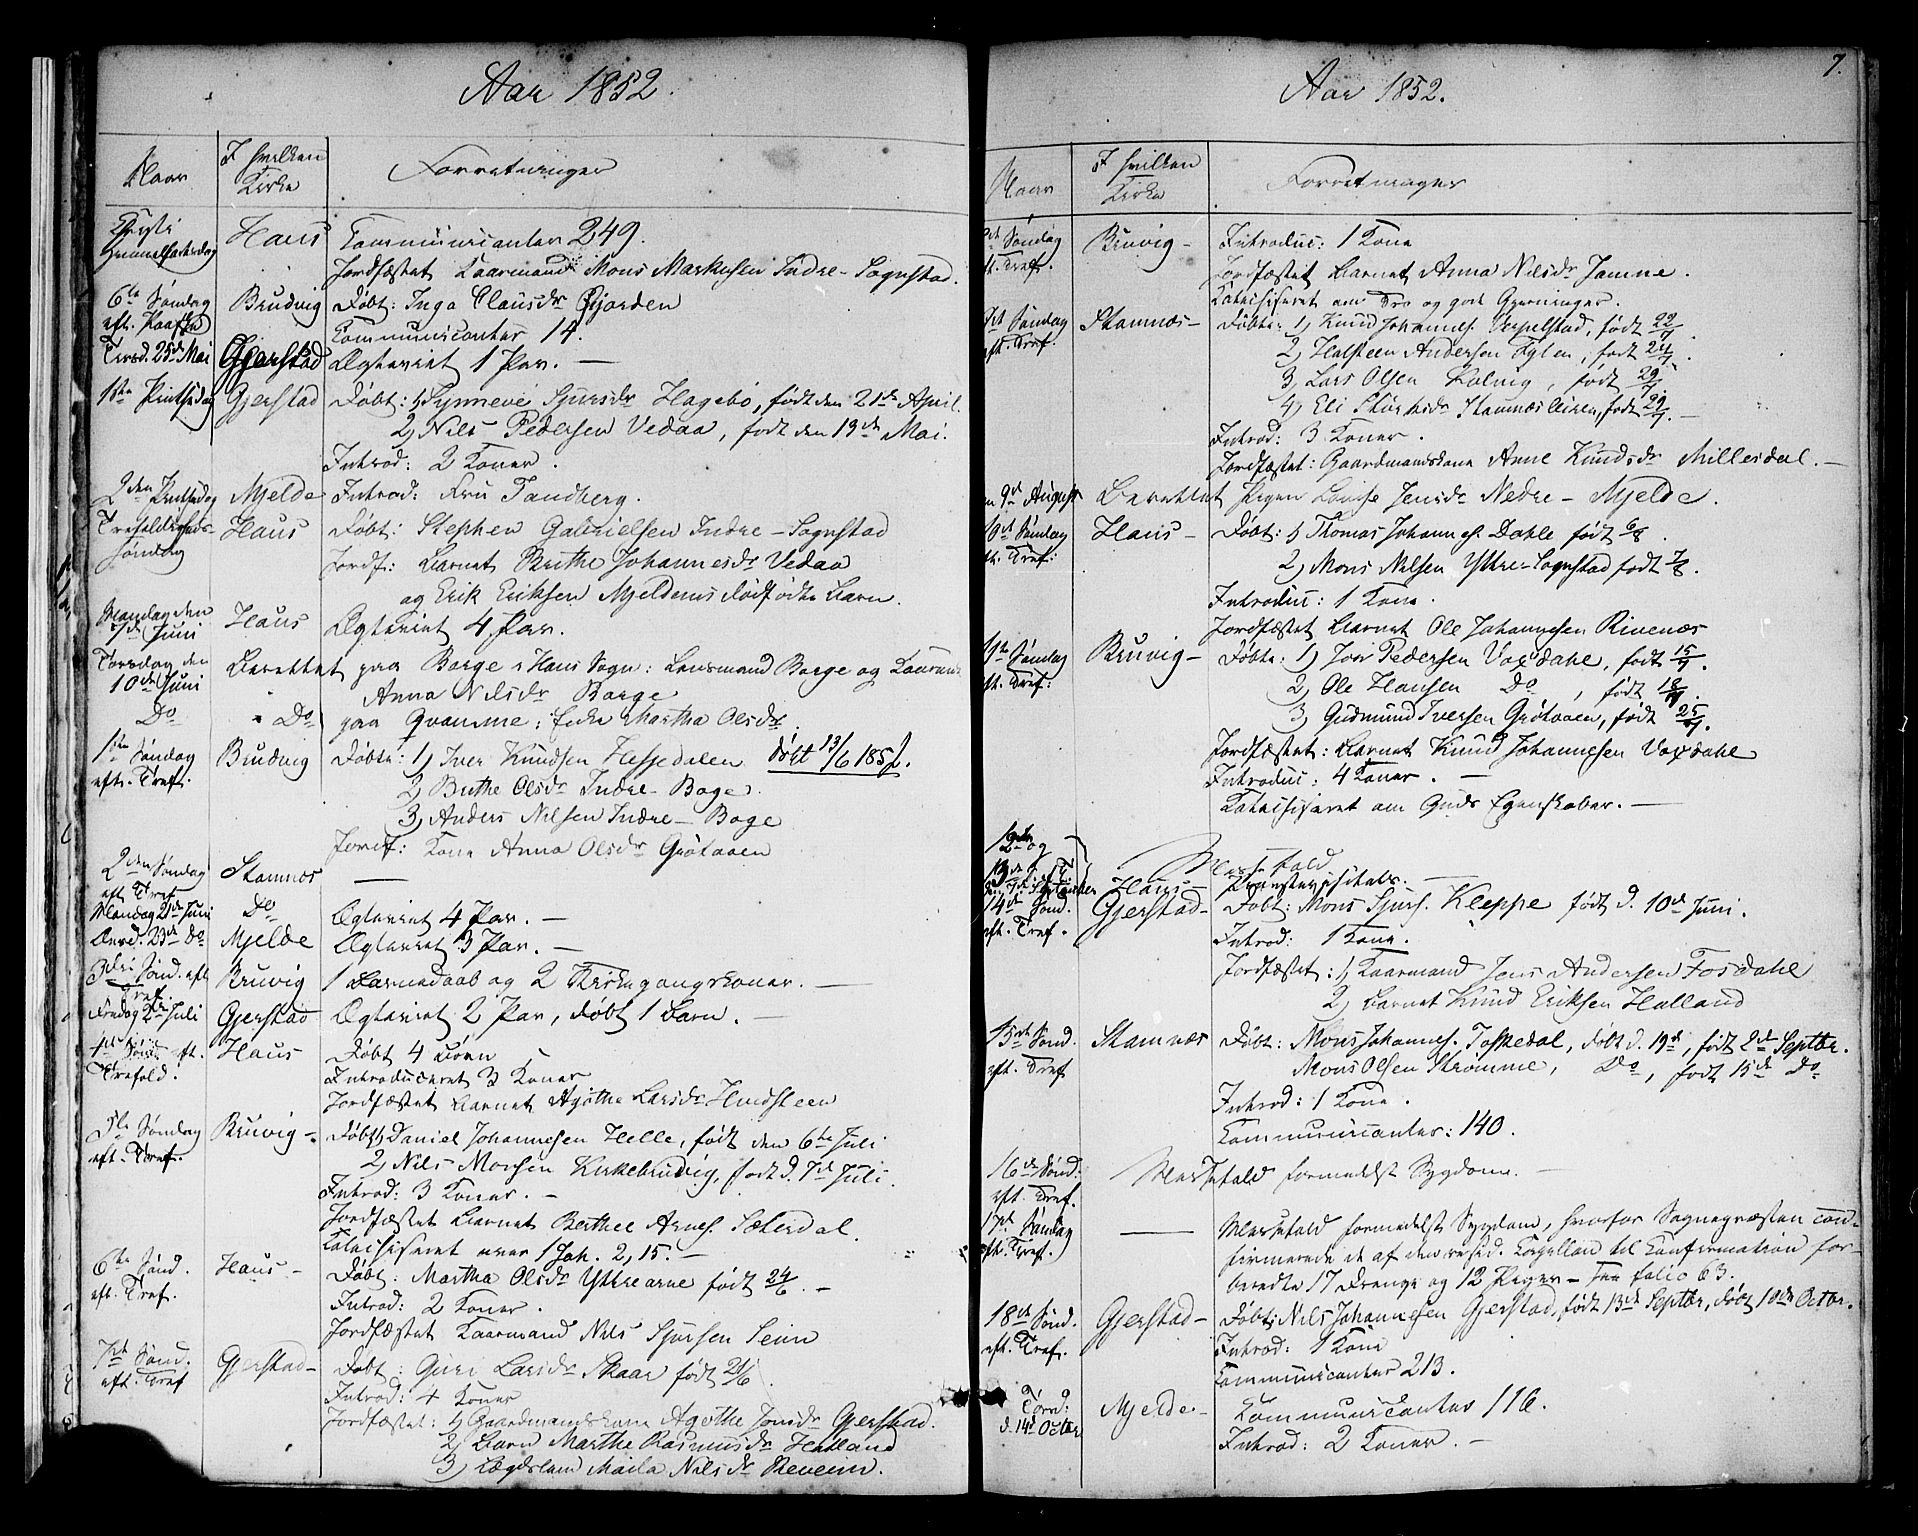 Aar 1852.
Naar
I hvilken Kirke
Forretninger
Christi Himmelfartsdag Haus Communicanter 249.
Jordfæstet Kaarmand Mons Markusen Indre-Sognstad.
6te Søndag eft. Paaske Brudvig Døbt: Inga Clausdr Gjorden
Communicanter 14.
Tirsd. 25de Mai Gjerstad Ægteviet 1 Par. –
1ste Pintsedag Gjerstad Døbt: 1, Synneve Sjursdr Hagebø, født den 21de April.
2, Nils Pedersen Vedaa, født den 13de Mai.
Introd: 2 Koner.
2den Pintsedag Mjelde Introd: Fru Tandberg.
Trefoldigheds-søndag Haus Døbt: Stephen Gabrielsen Indre-Sognstad
Jordf: Barnet Brithe Johannesdr Vedaa
og Erik Eriksen Mjeldems dødfødte Barn.
Mandag den 7de Juni Haus Ægteviet 4 Par.
Torsdag den 10de Juni Berettet paa Borge i Haus Sogn: Lensmand Borge og
Anna Nilsdr Borge
Do Do paa Qvamme: Enke Martha Olsdr.
1ste Søndag eft. Tref. Brudvig Døbte: 1) Iver Knudsen Hesjedalen døbt 13/6 1852.
2) Brithe Olsdr Indre-Boge.
3) Anders Nilsen Indre-Boge
Jordf: Kone Anna Olsdr Grøtaaen
2den Søndag eft Tref Stamnæs —
Mandag 21de Juni Do Ægteviet 4 Par. –
Onsd. 23de Do Mjelde Ægteviet 3 Par. –
3die Sønd. eft Tref. Bruvig 1 Barnedaab og 2 Kirkegangskoner. –
Fredag 2de Juli Gjerstad Ægteviet 2 Par, døbt 1 Barn. –
4de Sønd. eft. Trefold. Haus Døbt 4 Børn
Introduceret 3 Koner
Jordfæstet Barnet Agathe Larsdr Hindsteen
5te Søndag eft. Tref. Bruvig –. Døbt 1, Daniel Johannesen Helle, født den 6te Juli
2, Nils Monsen Kirkebruvig, født d. 7de Juli.
Introd: 3 Koner. –
Jordfæstet Barnet Berthee Arnes. Sæterdal.
Catechiseret over 1 Joh. 2, 15. –
6te Sønd. eft. Tref. Haus – Døbt: Martha Olsdr Yttre arne født 24/6. –
Introd: 2 Koner.
Jordfæstet Kaarmand Nils Sjursen Seim
7de Sønd. eft. Tref Gjerstad – Døbt: Guri Larsdr Skaar født 21/6.
Introd: 4 Koner
Jordfæstet: 1, Gaardmandskone Agothe Jonsdr Gjerstad.
2) Barn Marthe Rasmusdr Hatland
3) Lægdslem Maila Nilsdr Reveim.
7.
Aar 1852.
Naar
I hvilken Kirke
Forretninger
Søndag eft. Tref. Bruvig – Introduc: 1 Kone
Jordfæstet Barnet Anna Nilsdr Jamne.
Catechiseret om Tro og gode Gjerninger.
Søndag eft. Tref. Stamnæs – Døbte: 1) Knud Johannes. Vespelstad, født 22/7.
2, Halsteen Andersen Fylen, født 24/7.
3, Lars Olsen Kalvig, født 29/7.
4, Eli Sturksdr Stamnæsleiren, født 29/7. –
Introd: 3 Koner.
Jordfæstet: Gaardmandskone Anne Knudsdr Millesdal. –
9de August Berettet Pigen Lovise Jensdr Nedre-Mjelde.
10de Søndag eft. Tref: Haus – Døbt: 1, Thomas Johannes. Dahle født 6/8.
2, Mons Nilsen Yttre-Sognstad født 7/8.
Introduc: 1 Kone.
Jordfæstet Barnet Ole Johannesen Rivenæs
11te Søndag eft. Tref: Bruvig – Døbte: 1) Joar Pedersen Voxdahl, født 15/7.
2, Ole Hansen Do, født 18/7.
3, Gudmund Iversen Grøtaaen, født 25/7.
Jordfæstet: Barnet Knud Johannesen Voxdahl
Introduc: 4 Koner. –
Catechiseret om Guds Egenskaber. –
12te og 13de S. e. T. Messefald
Haus – Provstevisitats. –
14de Sønd. eft. Tref. Gjerstad – Døbt: Mons Sjurs. Kleppe født d. 10de Juni.
Introd: 1 Kone.
Jordfæstet: 1, Kaarmand Jens Andersen Fosdahl
2, Barnet Knud Eriksen Hatland
15de Sønd. eft. Tref Stamnæs Døbt: Mons Johannes. Toskedal, døbt d. 19de, født 2de Septbr.
Mons Olsen Strømme, Do, født 15de Do
Introd: 1 Kone.
Communicanter: 140.
16de Sønd: eft. Tref. Messefald formedelst Sygdom. –
17de Søndag eft. Tref. — Messefald formedelst Sygdom, hvorfor Sognepræsten con-
firmerede de af den resid. Capellan til Confirmation for-
beredte 17 Drenge og 12 Piger – See folio 63.
18de Sønd. eft. Tref. Gjerstad – Døbt: Nils Johannesen Gjerstad, født 13de Septbr, døbt 10de Octbr.
Introd: 1 Kone
Communicanter 213.
Torsd: d. 14de Octbr Mjelde – Communicanter 116.
Introd: 2 Koner. –